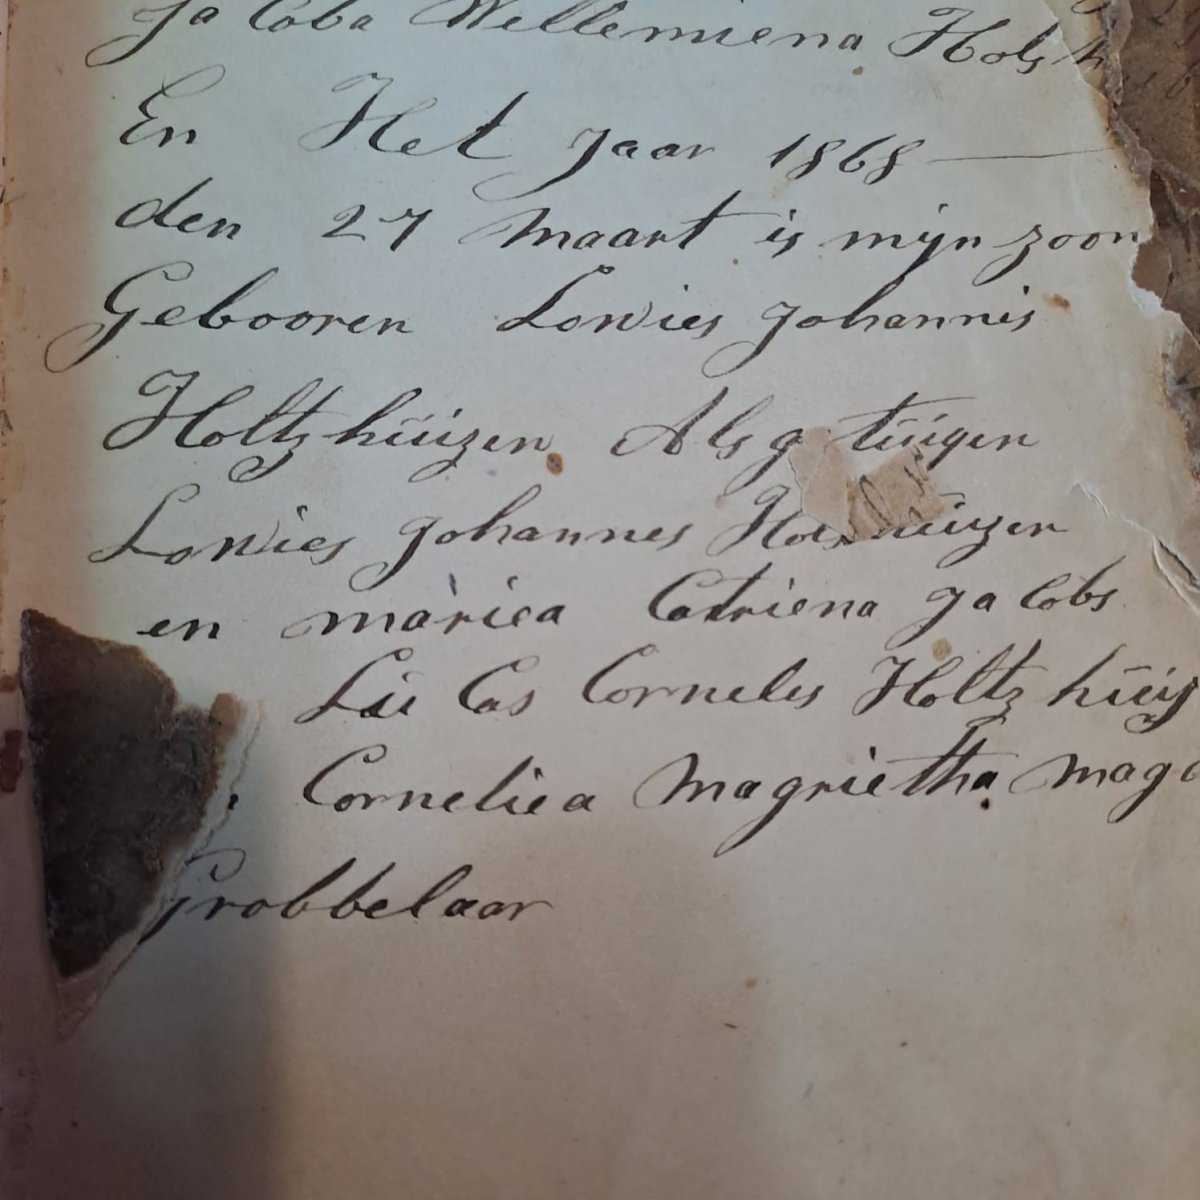 Ja Coba Wellemiena
En Het Jaar 1868
den 27 maart is mijn zoon
Gebooren Lowies Johannis
Holtzhüizen Als g tüigen
Lowies Johannes
en màriea Catriena Ja Cobs
Lü Cas Cornelis Holtz hüiz
Corneliea Magrietha mag
Grobbelaar